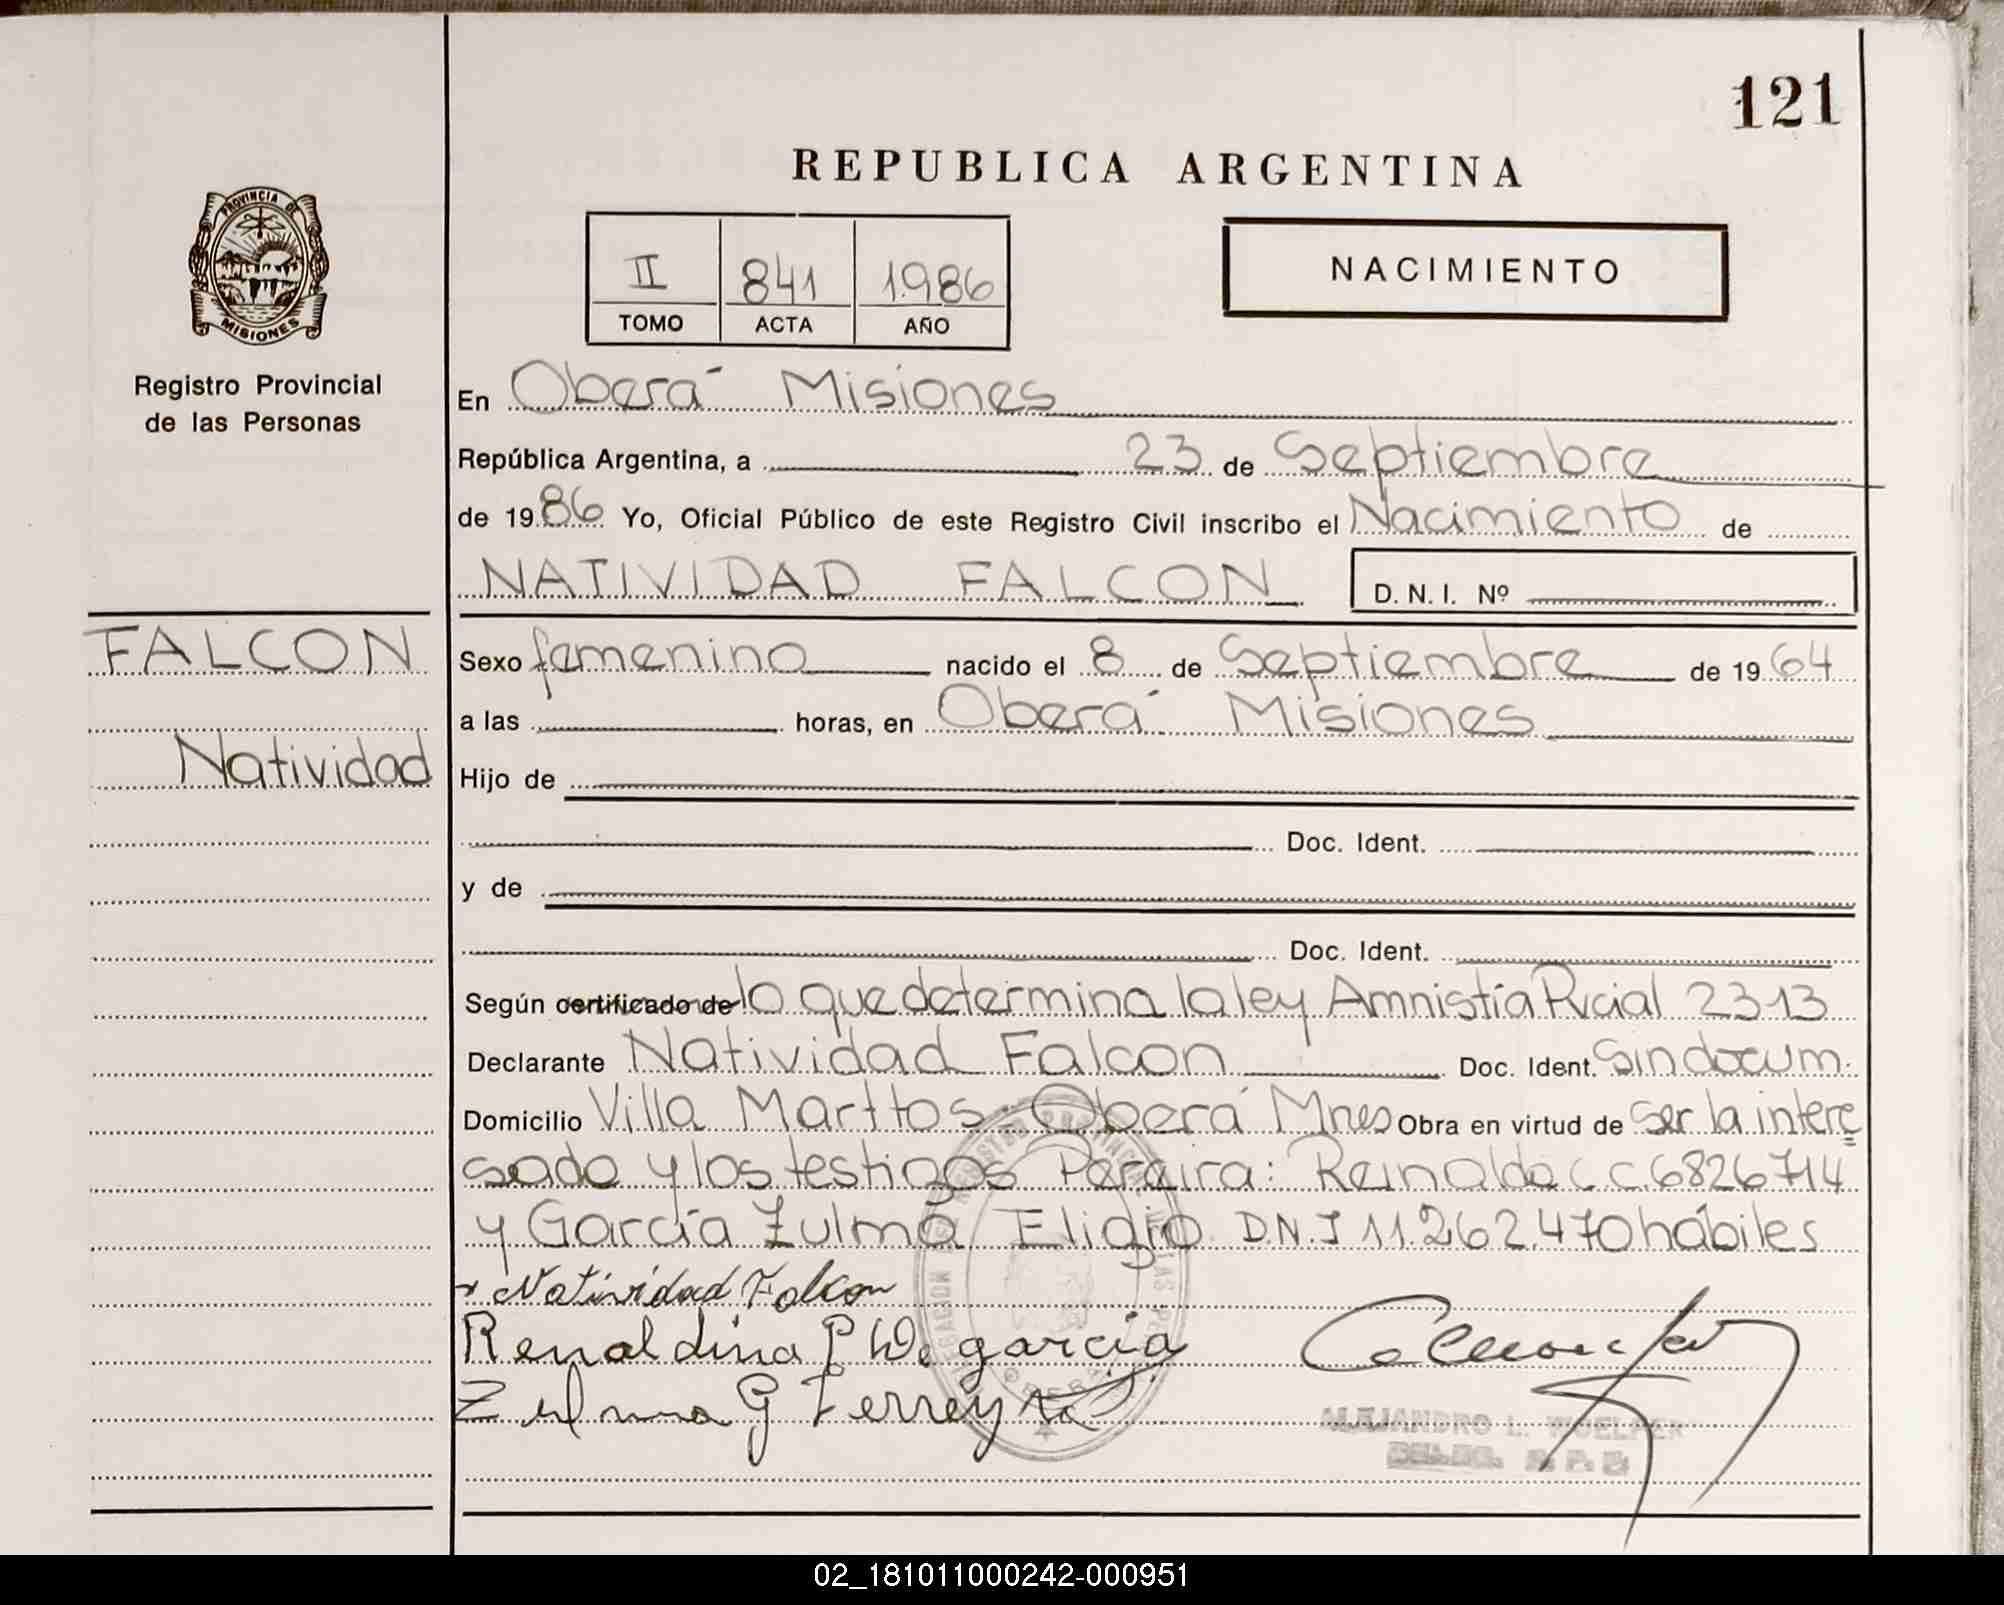 121
REPUBLICA ARGENTINA
PROVINCIA DE
MISIONES
Registro Provincial
de las Personas
II 841 1986
TOMO ACTA AÑO
NACIMIENTO
En Oberá Misiones
República Argentina, a 23 de Septiembre
de 1986 Yo, Oficial Público de este Registro Civil inscribo el Nacimiento de
NATIVIDAD FALCON D.N.I. Nº
FALCON
Natividad
Sexo femenino nacido el 8 de Septiembre de 1964
a las horas, en Oberá Misiones
Hijo de
Doc. Ident.
y de
Doc. Ident.
Según certificado de lo que determina la ley Amnistía Prcial 2313
Declarante Natividad Falcon Doc. Ident. Sin docum.
Domicilio Villa Marttos - Oberá Mnes Obra en virtud de ser la intere
sada y los testigos Pereira: Reinalda C.C. 6826714
y García Zulma Eligio D.N.I 11.262.470 hábiles
Natividad Falcon
Renaldina P W. garcia
Zulma G Ferreyra
ALEJANDRO L. WOELFER
02_181011000242-000951